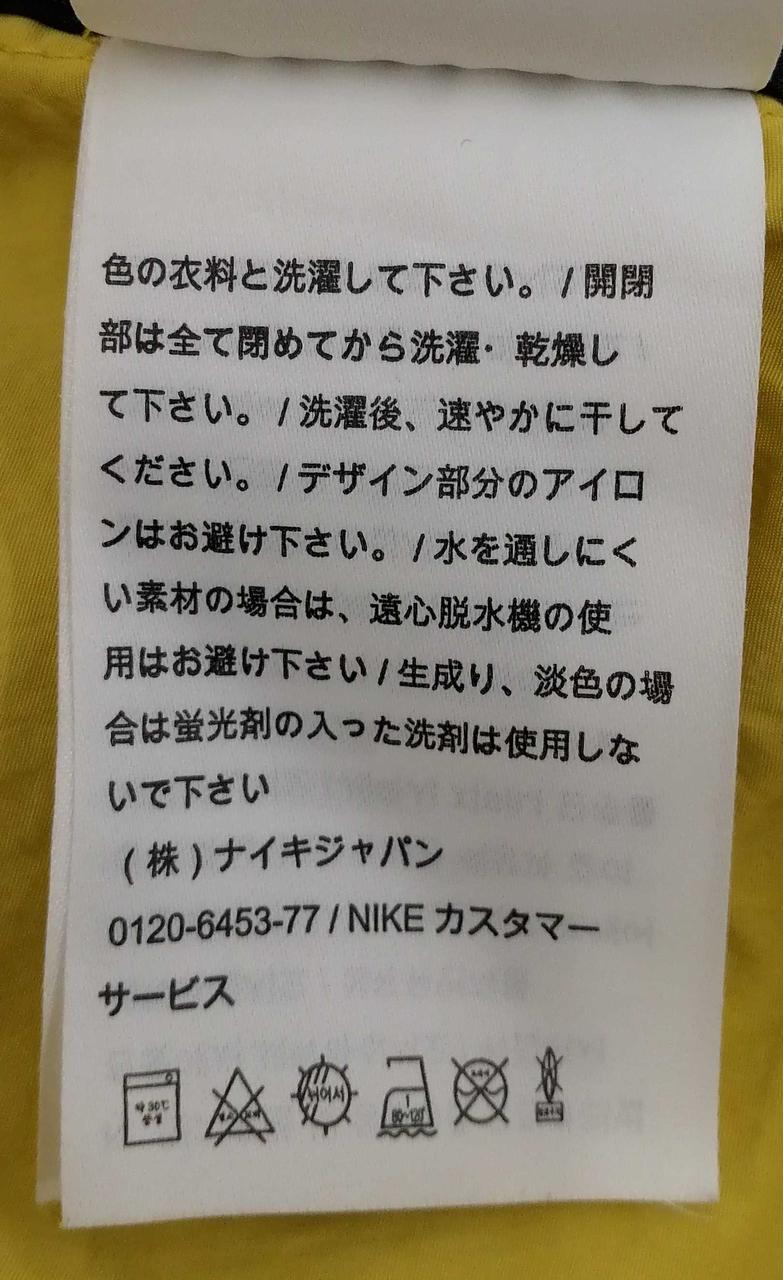 色の衣料と洗濯して下さい。/ 開閉
部は全て閉めてから洗濯・乾燥し
て下さい。/ 洗濯後、速やかに干して
ください。/ デザイン部分のアイロ
ンはお避け下さい。/ 水を通しにく
い素材の場合は、遠心脱水機の使
用はお避け下さい / 生成り、淡色の場
合は蛍光剤の入った洗剤は使用しな
いで下さい
(株) ナイキジャパン
0120-6453-77 / NIKE カスタマー
サービス
약 30℃ 뉘어서 80~120℃